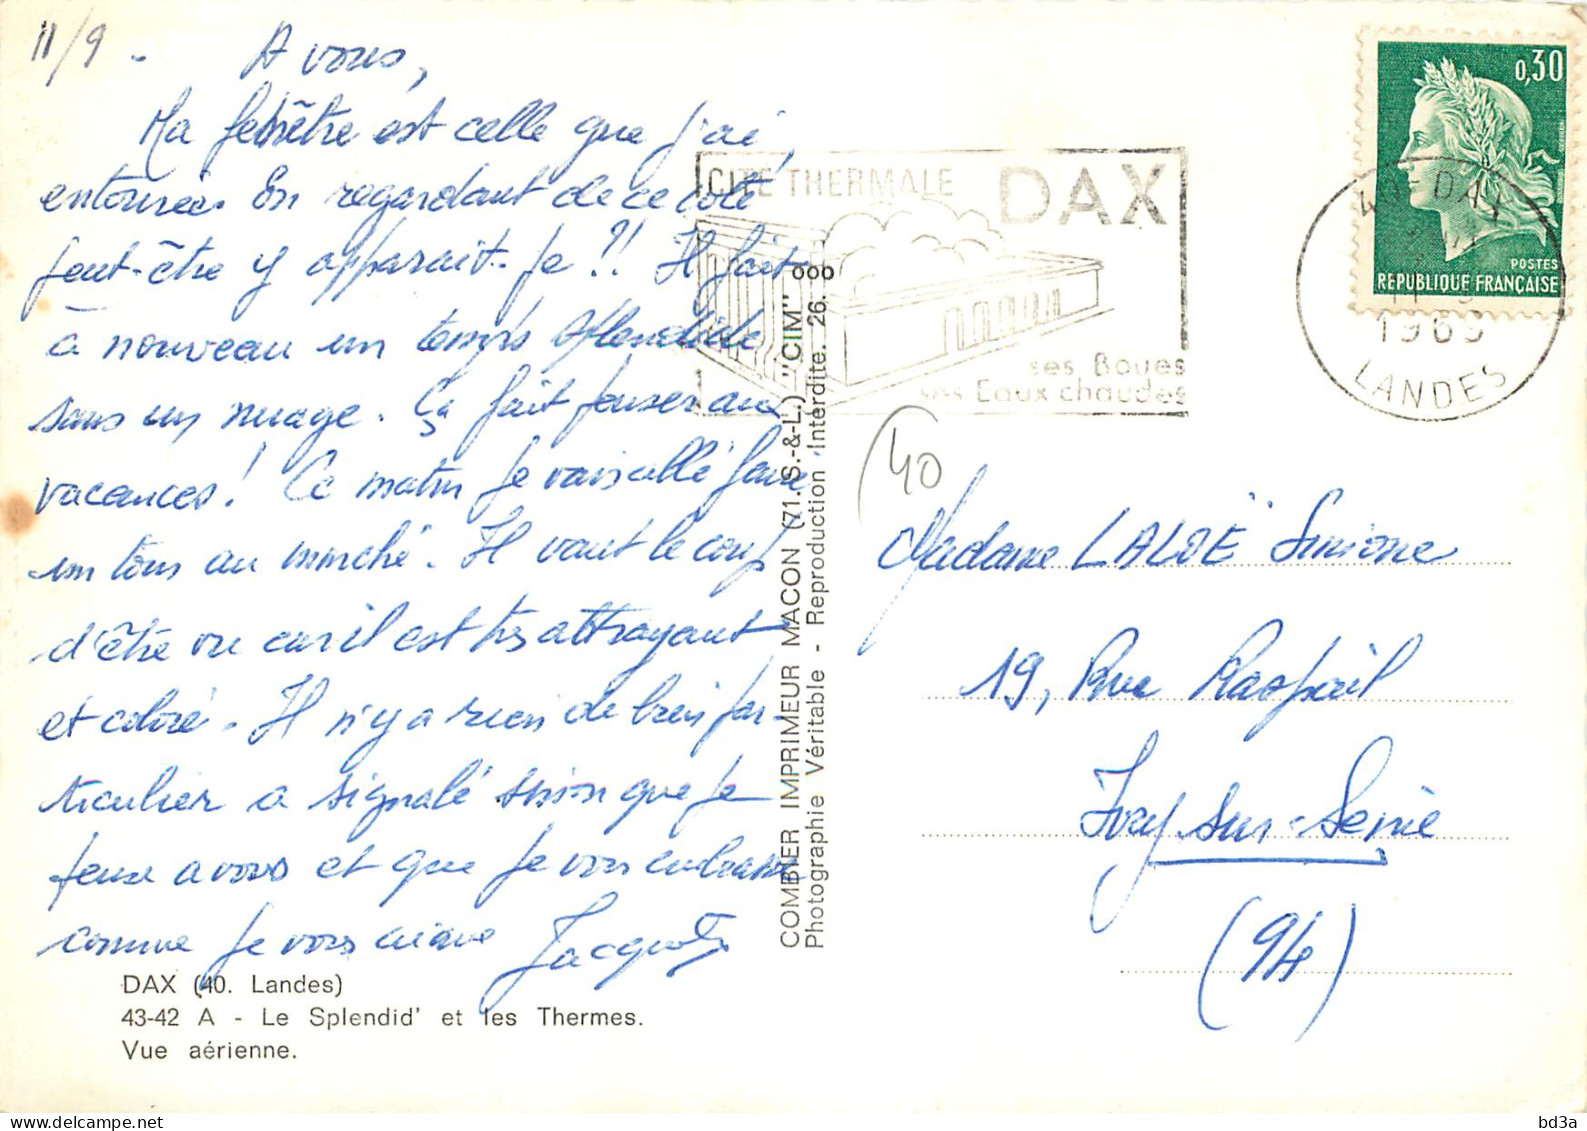 11/9 -
A vous,
Ma fenêtre est celle que j'ai
entourée. En regardant de ce coté
peut-être y apparait-je ?! Il fait
à nouveau un temps splendide
sans un nuage. Ça fait penser aux
vacances ! Ce matin je vais allé faire
un tour au marché. Il vaut le coup
d'être vu car il est très attrayant
et coloré. Il n'y a rien de bien par-
ticulier a signalé sinon que je
pense a vous et que je vous embrasse
comme je vous aime
DAX (40. Landes)
43-42 A - Le Splendid' et les Thermes.
Vue aérienne.
COMBIER IMPRIMEUR MACON (71. S.-&-L.) "CIM"
Photographie Véritable - Reproduction Interdite. 26.
CITÉ THERMALE DAX
ses Boues
ses Eaux chaudes
0,30
POSTES
REPUBLIQUE FRANÇAISE
40 DAX
1969
LANDES
40
Madame Simone
19, Rue Raspail
Ivry sur Seine
(94)
bd3a